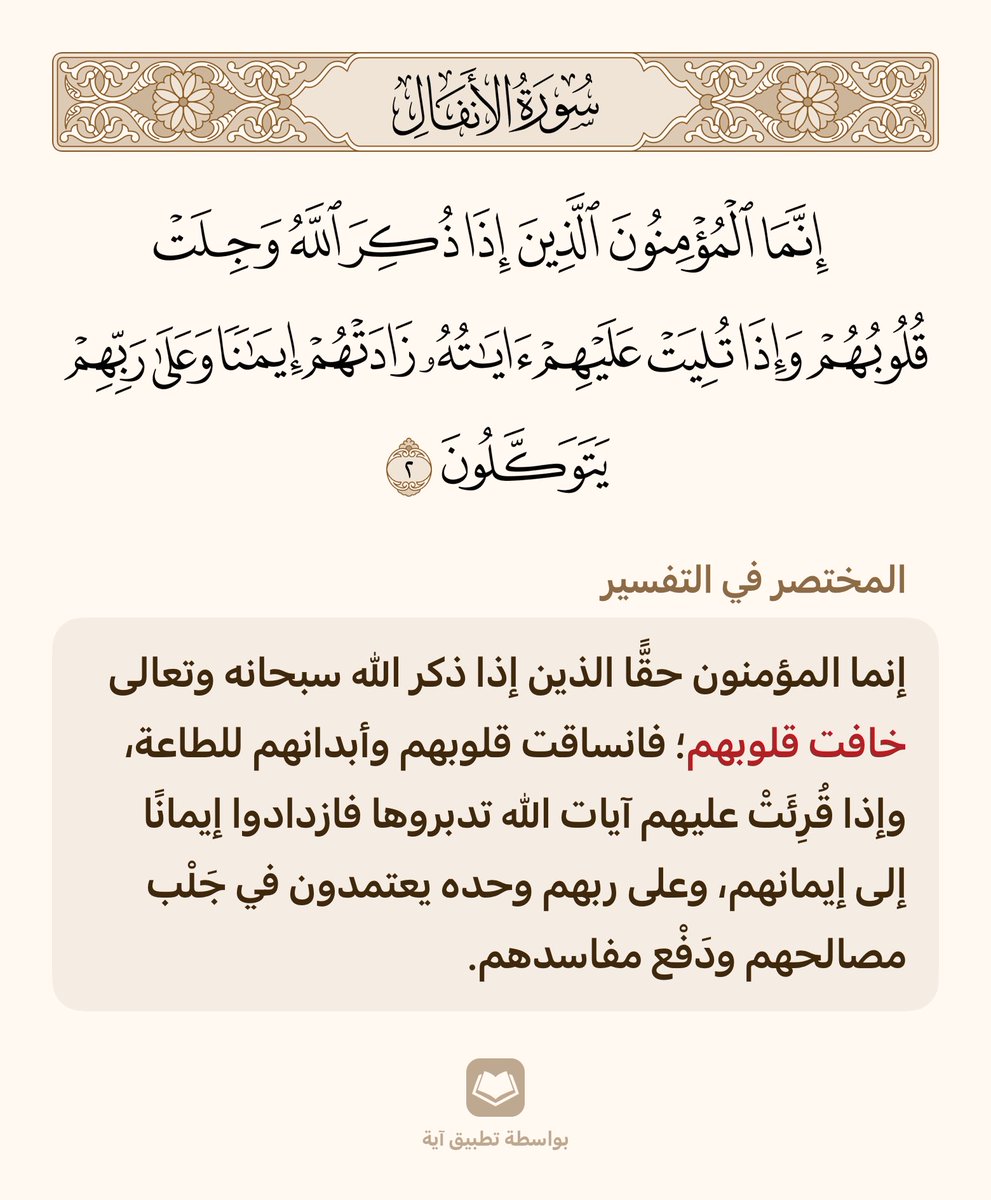 سُورَةُ الأَنفَالِ
إِنَّمَا ٱلْمُؤْمِنُونَ ٱلَّذِينَ إِذَا ذُكِرَ ٱللَّهُ وَجِلَتْ
قُلُوبُهُمْ وَإِذَا تُلِيَتْ عَلَيْهِمْ ءَايَـٰتُهُۥ زَادَتْهُمْ إِيمَـٰنًا وَعَلَىٰ رَبِّهِمْ
يَتَوَكَّلُونَ ٢
المختصر في التفسير
إنما المؤمنون حقًّا الذين إذا ذكر الله سبحانه وتعالى
خافت قلوبهم؛ فانساقت قلوبهم وأبدانهم للطاعة،
وإذا قُرِئَتْ عليهم آيات الله تدبروها فازدادوا إيمانًا
إلى إيمانهم، وعلى ربهم وحده يعتمدون في جَلْب
مصالحهم ودَفْع مفاسدهم.
بواسطة تطبيق آية